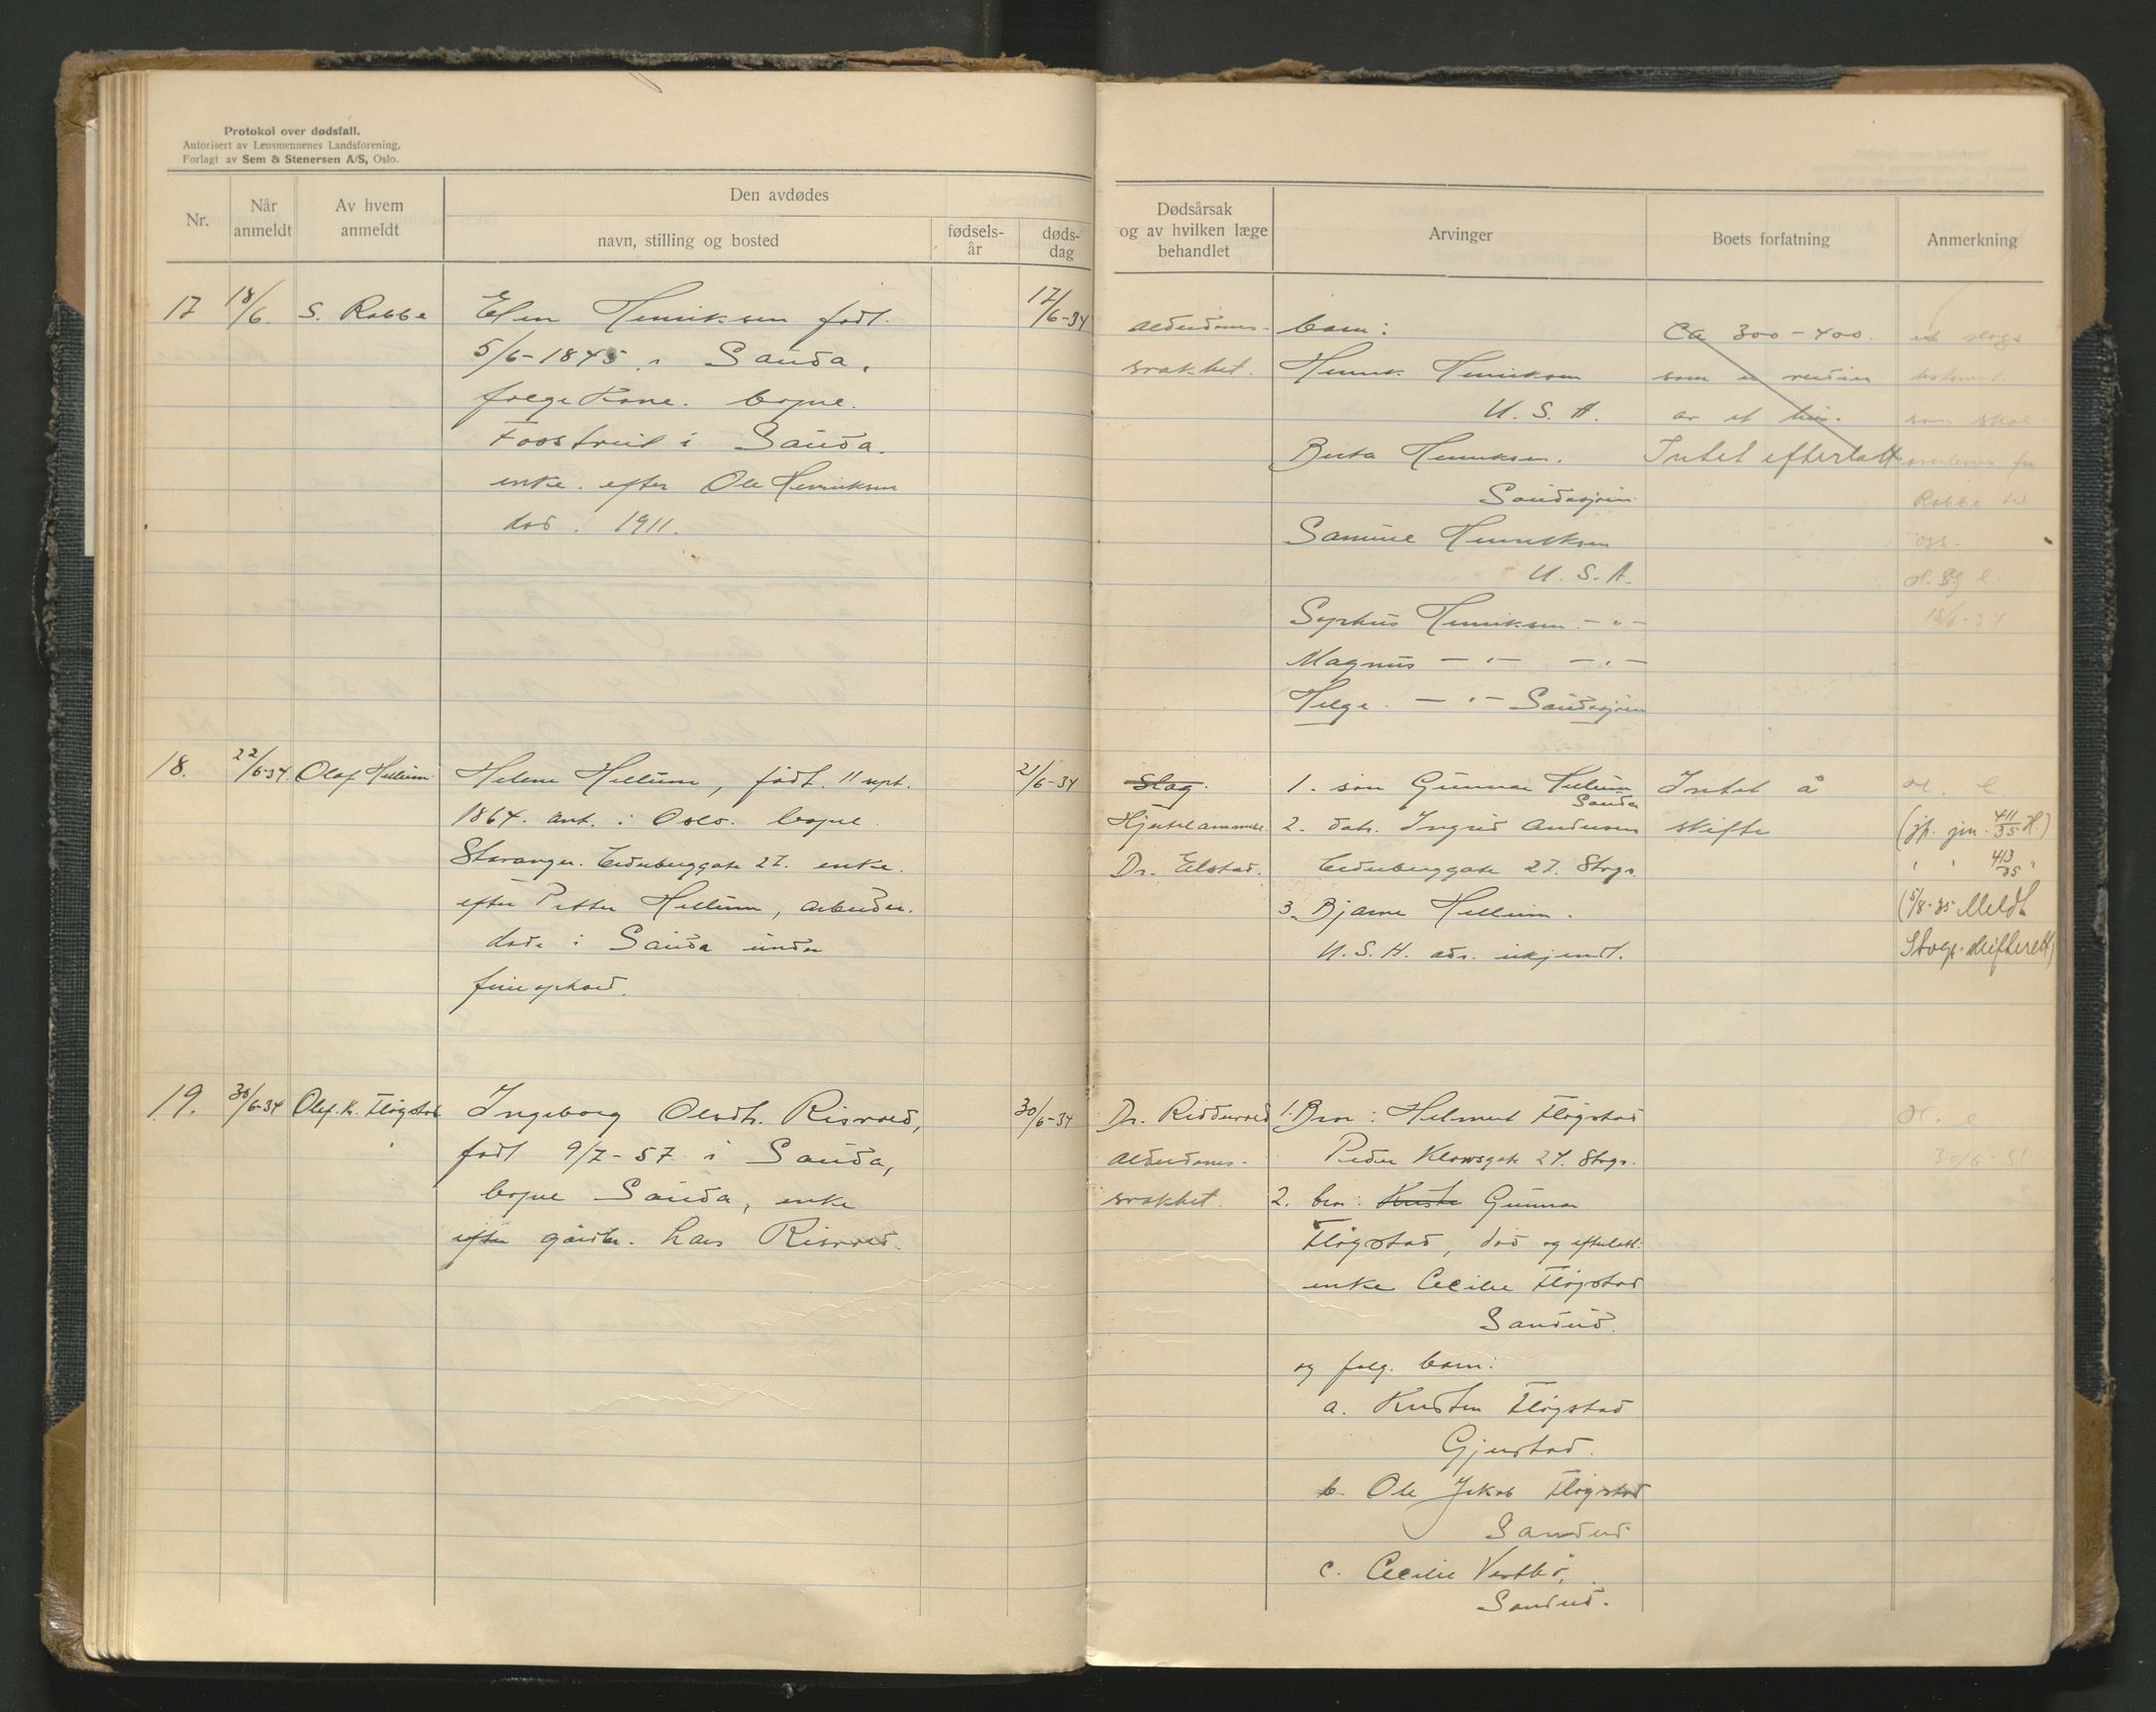 Protokol over dødsfall.
Autorisert av Lensmennenes Landsforening.
Forlagt av Sem & Stenersen A/S, Oslo.
Nr.
Når anmeldt
Av hvem anmeldt
Den avdødes
navn, stilling og bosted
fødsels-
år
døds-
dag
Dødsårsak
og av hvilken læge
behandlet
Arvinger
Boets forfatning
Anmerkning
17 18/6. S. Rabbe
Elen Henriksen født.
5/6-1845 i Sauda,
folgekone. bopel.
i Sauda.
enke efter Ole Henriksen
død. 1911.
17/6-34
alderdoms-
svakhet.
barn:
Henrik Henriksen
U. S. A.
Berta Henriksen.
Saudasjøen
Samuel Henriksen
U. S. A.
Syrkus Henriksen -"-
Magnus -"- -"-
Helge. -"- Saudasjøen
Ca 300-400.
som er
av et hus.
Intet efterlatt
som skal
Rabbe til
oss.
18/6-34
18. 22/6-34. Olaf Hellum
Helene Hellum, født. 11 sept.
1864. ant. i Oslo. bopel
Stavanger. Cederberggate 27. enke.
efter Petter Hellum, arbeider.
døde i Sauda under
ferieophold.
21/6-34
Slag.
Hjertelammelse.
Dr. Elstad.
1. søn Gunnar Hellum
Sauda
2. datr. Ingrid Andersen
Cederberggate 27. Stvgr.
3. Bjarne Hellum.
U. S. A. adr. ukjendt.
Intet å
skifte
(jfr. jnr. 411/35 H.)
" " 413/35 "
(5/8-35 Meldt
Stvgr. skifterett)
19. 30/6-34 Olaf. K. Fløgstad.
Ingeborg Olsdtr. Risvold,
født 9/7-57 i Sauda,
bopel Sauda, enke
efter gårdbr. Lars Risvold.
30/6-34
Dr. Riddervold
alderdoms-
svakhet.
1. Bror: Helmert Fløgstad
Peder Klowsgate 24. Stvgr.
2. bror: Gunnar
Fløgstad, død og efterlatt:
enke Cecilie Fløgstad
Sandeid.
og følg. barn:
a. Kirsten Fløgstad
Gjerstad.
b. Ole Jakob Fløgstad
Sandeid.
c. Cecilie Vestbø,
Sandeid.
30/6